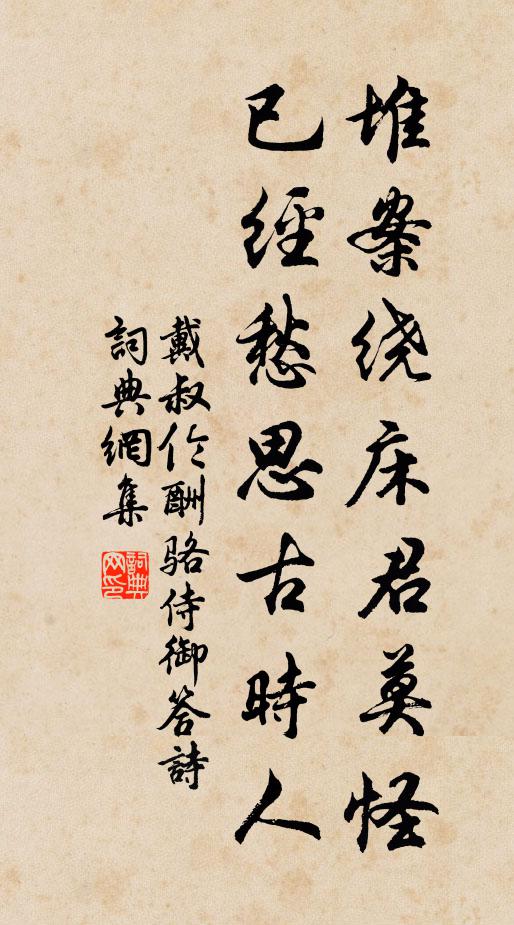 堆案绕床君莫怪
已經愁思古時人
戴叔伦酬骆侍御答詩
詞典網集
詞典網印